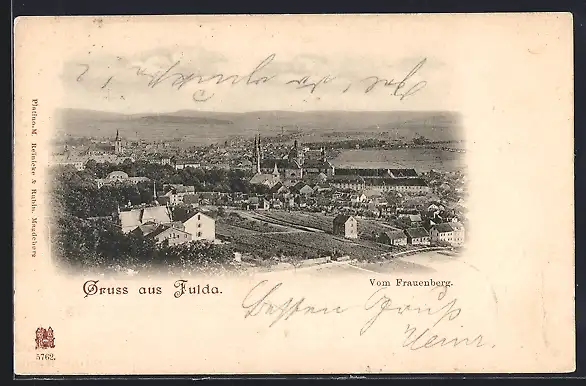 Platino-M. Reinicke & Rubin, Magdeburg
Gruss aus Fulda.
Vom Frauenberg.
Besten Gruß
Heinr.
5762.